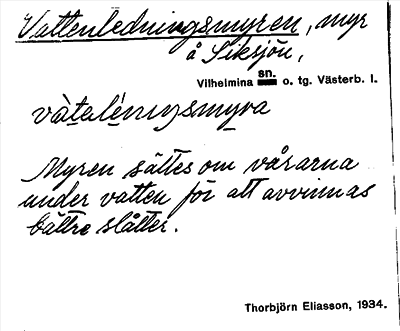 Vattenledningsmyren, myr
å Siksjön,
Vilhelmina sn. o. tg. Västerb. l.
våtalénıgsmyra
Myren sättes om vårarna
under vatten för att avvinnas
bättre slåtter.
Thorbjörn Eliasson, 1934.